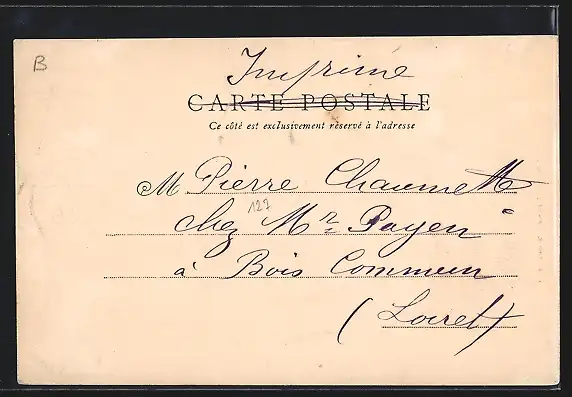 B
Imprimé
CARTE POSTALE
Ce côté est exclusivement réservé à l'adresse
M Pierre Chaumette
127
chez Mr Payen
à Bois Commun
(Loiret)